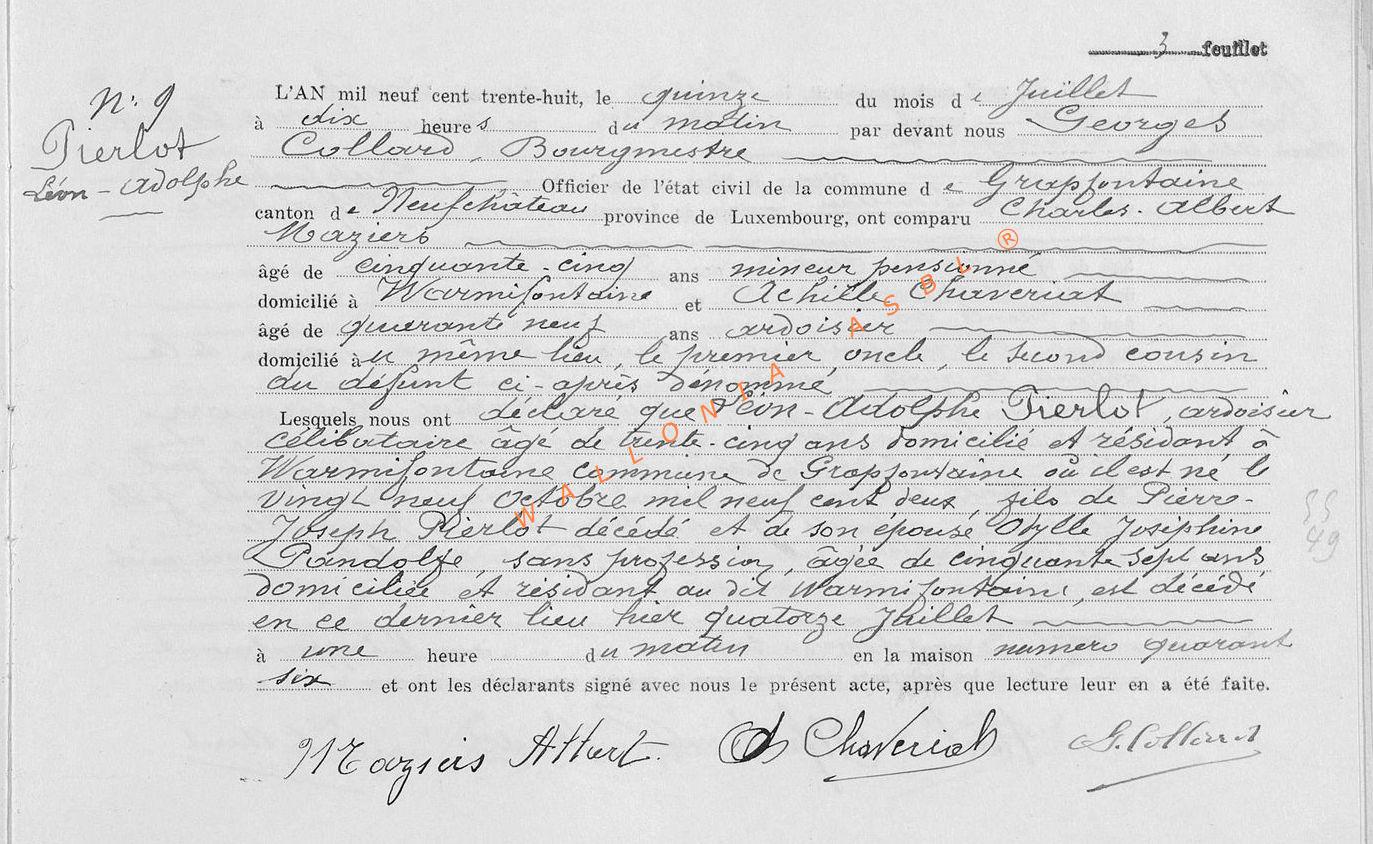 3 feuillet
N° 9
Pierlot
Léon - Adolphe
L'AN mil neuf cent trente-huit, le quinze du mois de Juillet
à dix heures du matin par devant nous Georges
Collard, Bourgmestre
Officier de l'état civil de la commune de Grapfontaine
canton de Neufchâteau province de Luxembourg, ont comparu Charles-Albert
Maziers
âgé de cinquante-cinq ans mineur pensionné
domicilié à Warmifontaine et Achille Chaveriat
âgé de quarante neuf ans ardoisier
domicilié au même lieu, le premier oncle, le second cousin
du défunt ci-après dénommé
Lesquels nous ont déclaré que Léon-Adolphe Pierlot, ardoisier
célibataire âgé de trente-cinq ans domicilié et résidant à
Warmifontaine commune de Grapfontaine où il est né le
vingt neuf Octobre mil neuf cent deux, fils de Pierre-
Joseph Pierlot décédé et de son épouse Odylle Joséphine
Pandolfe, sans profession, âgée de cinquante sept ans
domiciliée et résidant au dit Warmifontaine, est décédé
en ce dernier lieu hier quatorze Juillet
à une heure du matin en la maison numero quarant
six et ont les déclarants signé avec nous le présent acte, après que lecture leur en a été faite.
Maziers Albert. Ch Chaveriat G. Collard
55
49
WALLONIA ASBL ®